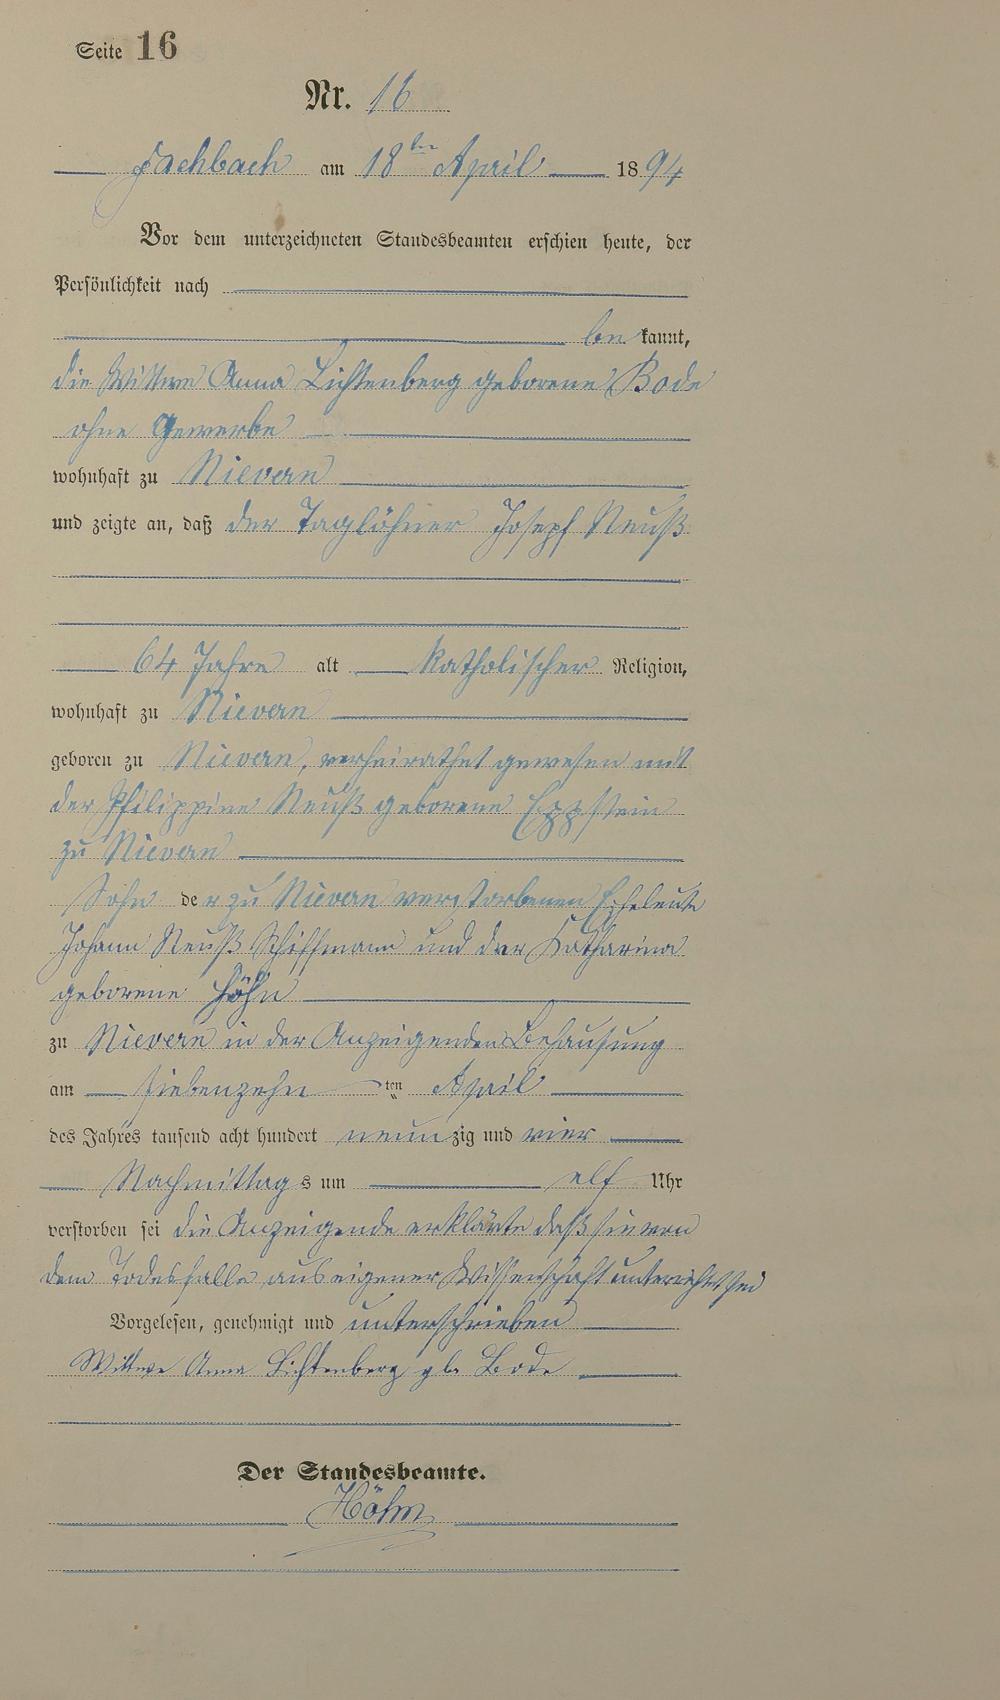 Seite 16
Nr. 16
Fachbach am 18ten April 1894
Vor dem unterzeichneten Standesbeamten erschien heute, der
Persönlichkeit nach
bekannt,
die Wittwe Anna Lichtenberg geborene Bode
ohne Gewerbe
wohnhaft zu Nievern
und zeigte an, daß der Taglöhner Joseph Neuß
64 Jahre alt katholischer Religion,
wohnhaft zu Nievern
geboren zu Nievern, verheirathet gewesen mit
der Philippine Neuß geborene Eppstein
zu Nievern
Sohn der zu Nievern verstorbenen Eheleute
Johann Neuß Schiffmann und der Katharina
geborene Höhn
zu Nievern in der Anzeigenden Behausung
am siebenzehn ten April
des Jahres tausend acht hundert neunzig und vier
Nachmittags um elf Uhr
verstorben sei die Anzeigende erklärte daß sie von
dem Todesfalle aus eigener Wissenschaft unterrichtet sei
Vorgelesen, genehmigt und unterschrieben
Wittwe Anna Lichtenberg gb. Bode
Der Standesbeamte.
Höhn